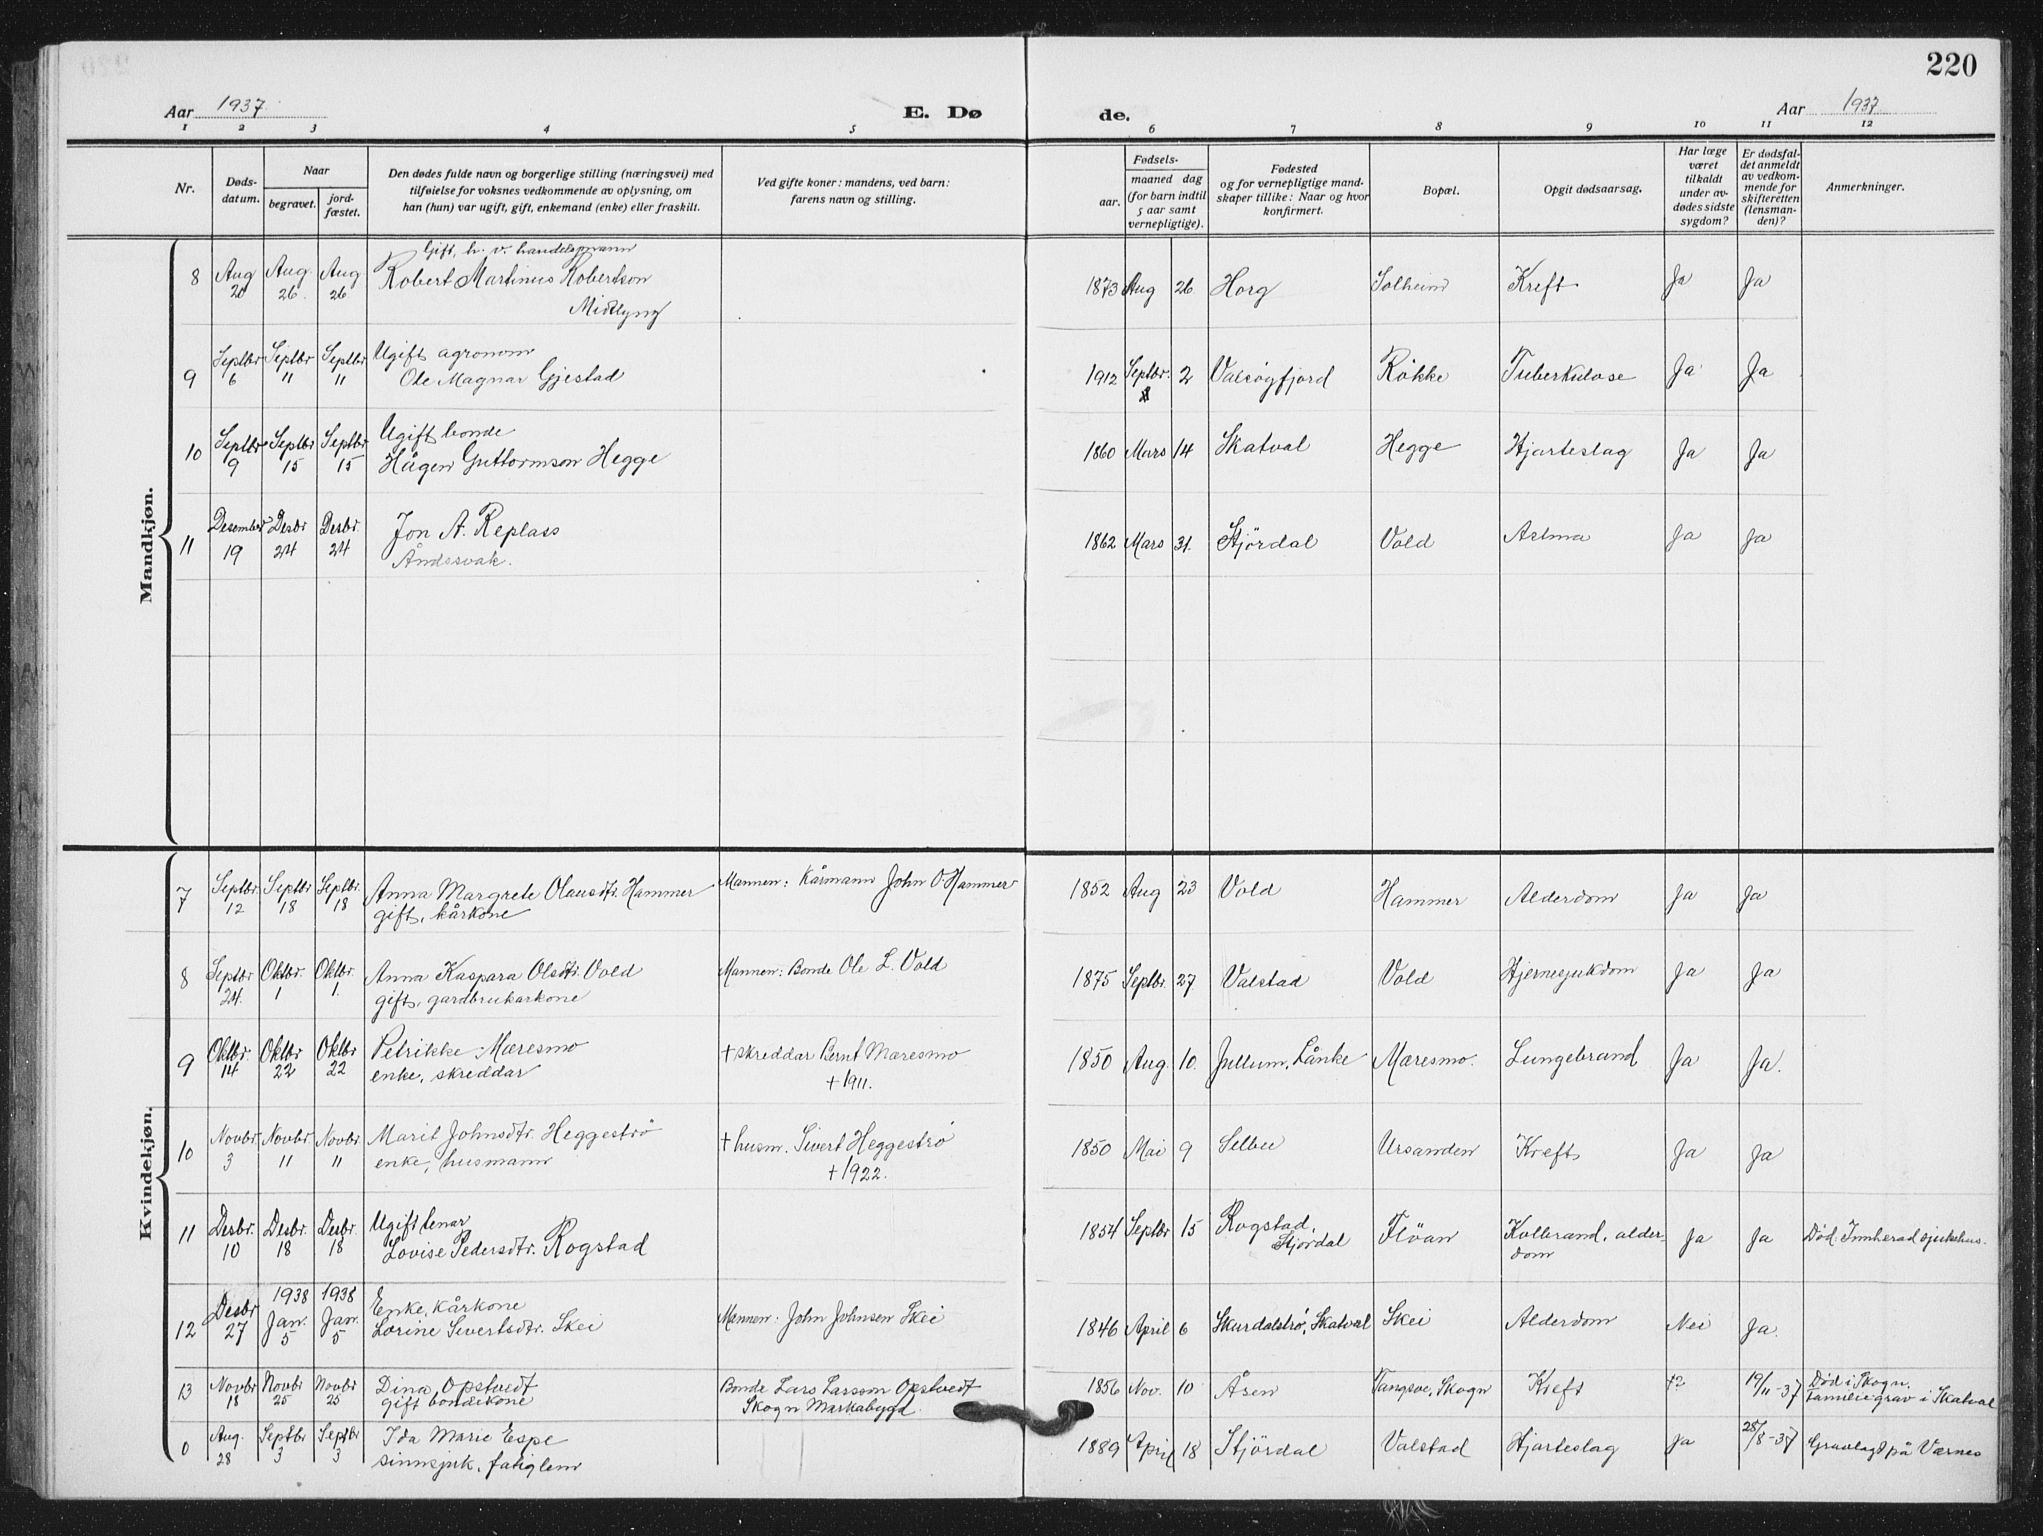 220
Aar 1937
E. Dø
de.
Aar 1937
1 2 3 4 5 6 7 8 9 10 11 12
Nr.
Døds-
datum.
Naar
begravet.
jord-
fæstet.
Den dødes fulde navn og borgerlige stilling (næringsvei) med
tilføielse for voksnes vedkommende av oplysning, om
han (hun) var ugift, gift, enkemand (enke) eller fraskilt.
Ved gifte koner: mandens, ved barn:
farens navn og stilling.
Fødsels-
aar.
maaned dag
(for barn indtil
5 aar samt
vernepligtige).
Fødested
og for vernepligtige mand-
skaper tillike: Naar og hvor
konfirmert.
Bopæl.
Opgit dødsaarsag.
Har læge
været
tilkaldt
under av-
dødes sidste
sygdom?
Er dødsfal-
det anmeldt
av vedkom-
mende for
skifteretten
(lensman-
den)?
Anmerkninger.
Mandkjøn.
Gift, h. v. handelsmann
8 Aug 20 Aug. 26. Aug 26 Robert Martinus Robertson 1873 Aug 26 Horg Solheim Kreft Ja Ja
Midtlyng
Ugift agronom
9 Septbr 6 Septbr 11 Septbr 11 Ole Magnar Gjestad 1912 Septbr. 2 Valsøyfjord Røkke Tuberkulose Ja Ja
Ugift bonde
10 Septbr 9 Septbr 15 Septbr 15 Hågen Guttormson Hegge 1860 Mars 14 Skatval Hegge Hjarteslag Ja Ja
11 Desember 19 Desbr 24 Desbr. 24 Jon A. Replass 1862 Mars 31. Stjørdal Vold Astma Ja Ja
Åndssvak.
Kvindekjøn.
7 Septbr. 12 Septbr 18 Septbr. 18 Anna Margrete Olausdtr. Hammer Mannen: Kårmann John O. Hammer 1852 Aug 23 Vold Hammer Alderdom Ja Ja
gift, kårkone
8 Septbr 24. Oktbr. 1 Oktbr. 1. Anna Kaspara Olsdtr. Vold Mannen: Bonde Ole L. Vold 1875 Septbr. 27 Valstad Vold Hjernesjukdom Ja Ja
gift, gardbrukarkone
9 Oktbr. 14 Oktbr 22 Oktbr 22 Petrikke Mæresmo † skreddar Bernt Mæresmo 1850 Aug. 10. Jullum, Lånke Mæresmo. Lungebrand Ja Ja.
enke, skreddar † 1911.
10 Novbr. 3 Novbr. 11 Novbr. 11 Marit Johnsdtr. Heggestrø † husm. Sivert Heggestrø 1850 Mai 9 Selbu Ursanden Kreft Ja Ja
enke, husmann † 1922.
Ugift lenar
11 Desbr. 10 Desbr. 18 Desbr. 18 Lovise Pedersdtr. Rogstad 1854 Septbr 15 Rogstad, Stjørdal Fløan Kolbrand, alder-
dom Ja Ja Død. Innherad sjukehus.
Enke, kårkone
12 Desbr 27 1938 Jan. 5 1938 Jan. 5 Lorine Sivertsdtr. Skei Mannen: John Johnsen Skei 1846 April 6 Skurdalstrø, Skatval Skei Alderdom Nei Ja.
13 Novbr 18 Novbr 25 Novbr 25 Dina Opstvedt Bonde Lars Larsson Opstvedt 1856 Nov. 10 Åsen Tangsve, Skogn Kreft 19/11-37 Død i Skogn.
gift bondekone Skogn Markabygd Familiegrav i Skatval
0 Aug. 28 Septbr 3 Septbr 3 Ida Marie Espe 1889 April 18 Stjørdal Valstad Hjarteslag Ja 28/8-37 Gravlagd på Værnes
sinnsjuk, fatiglem